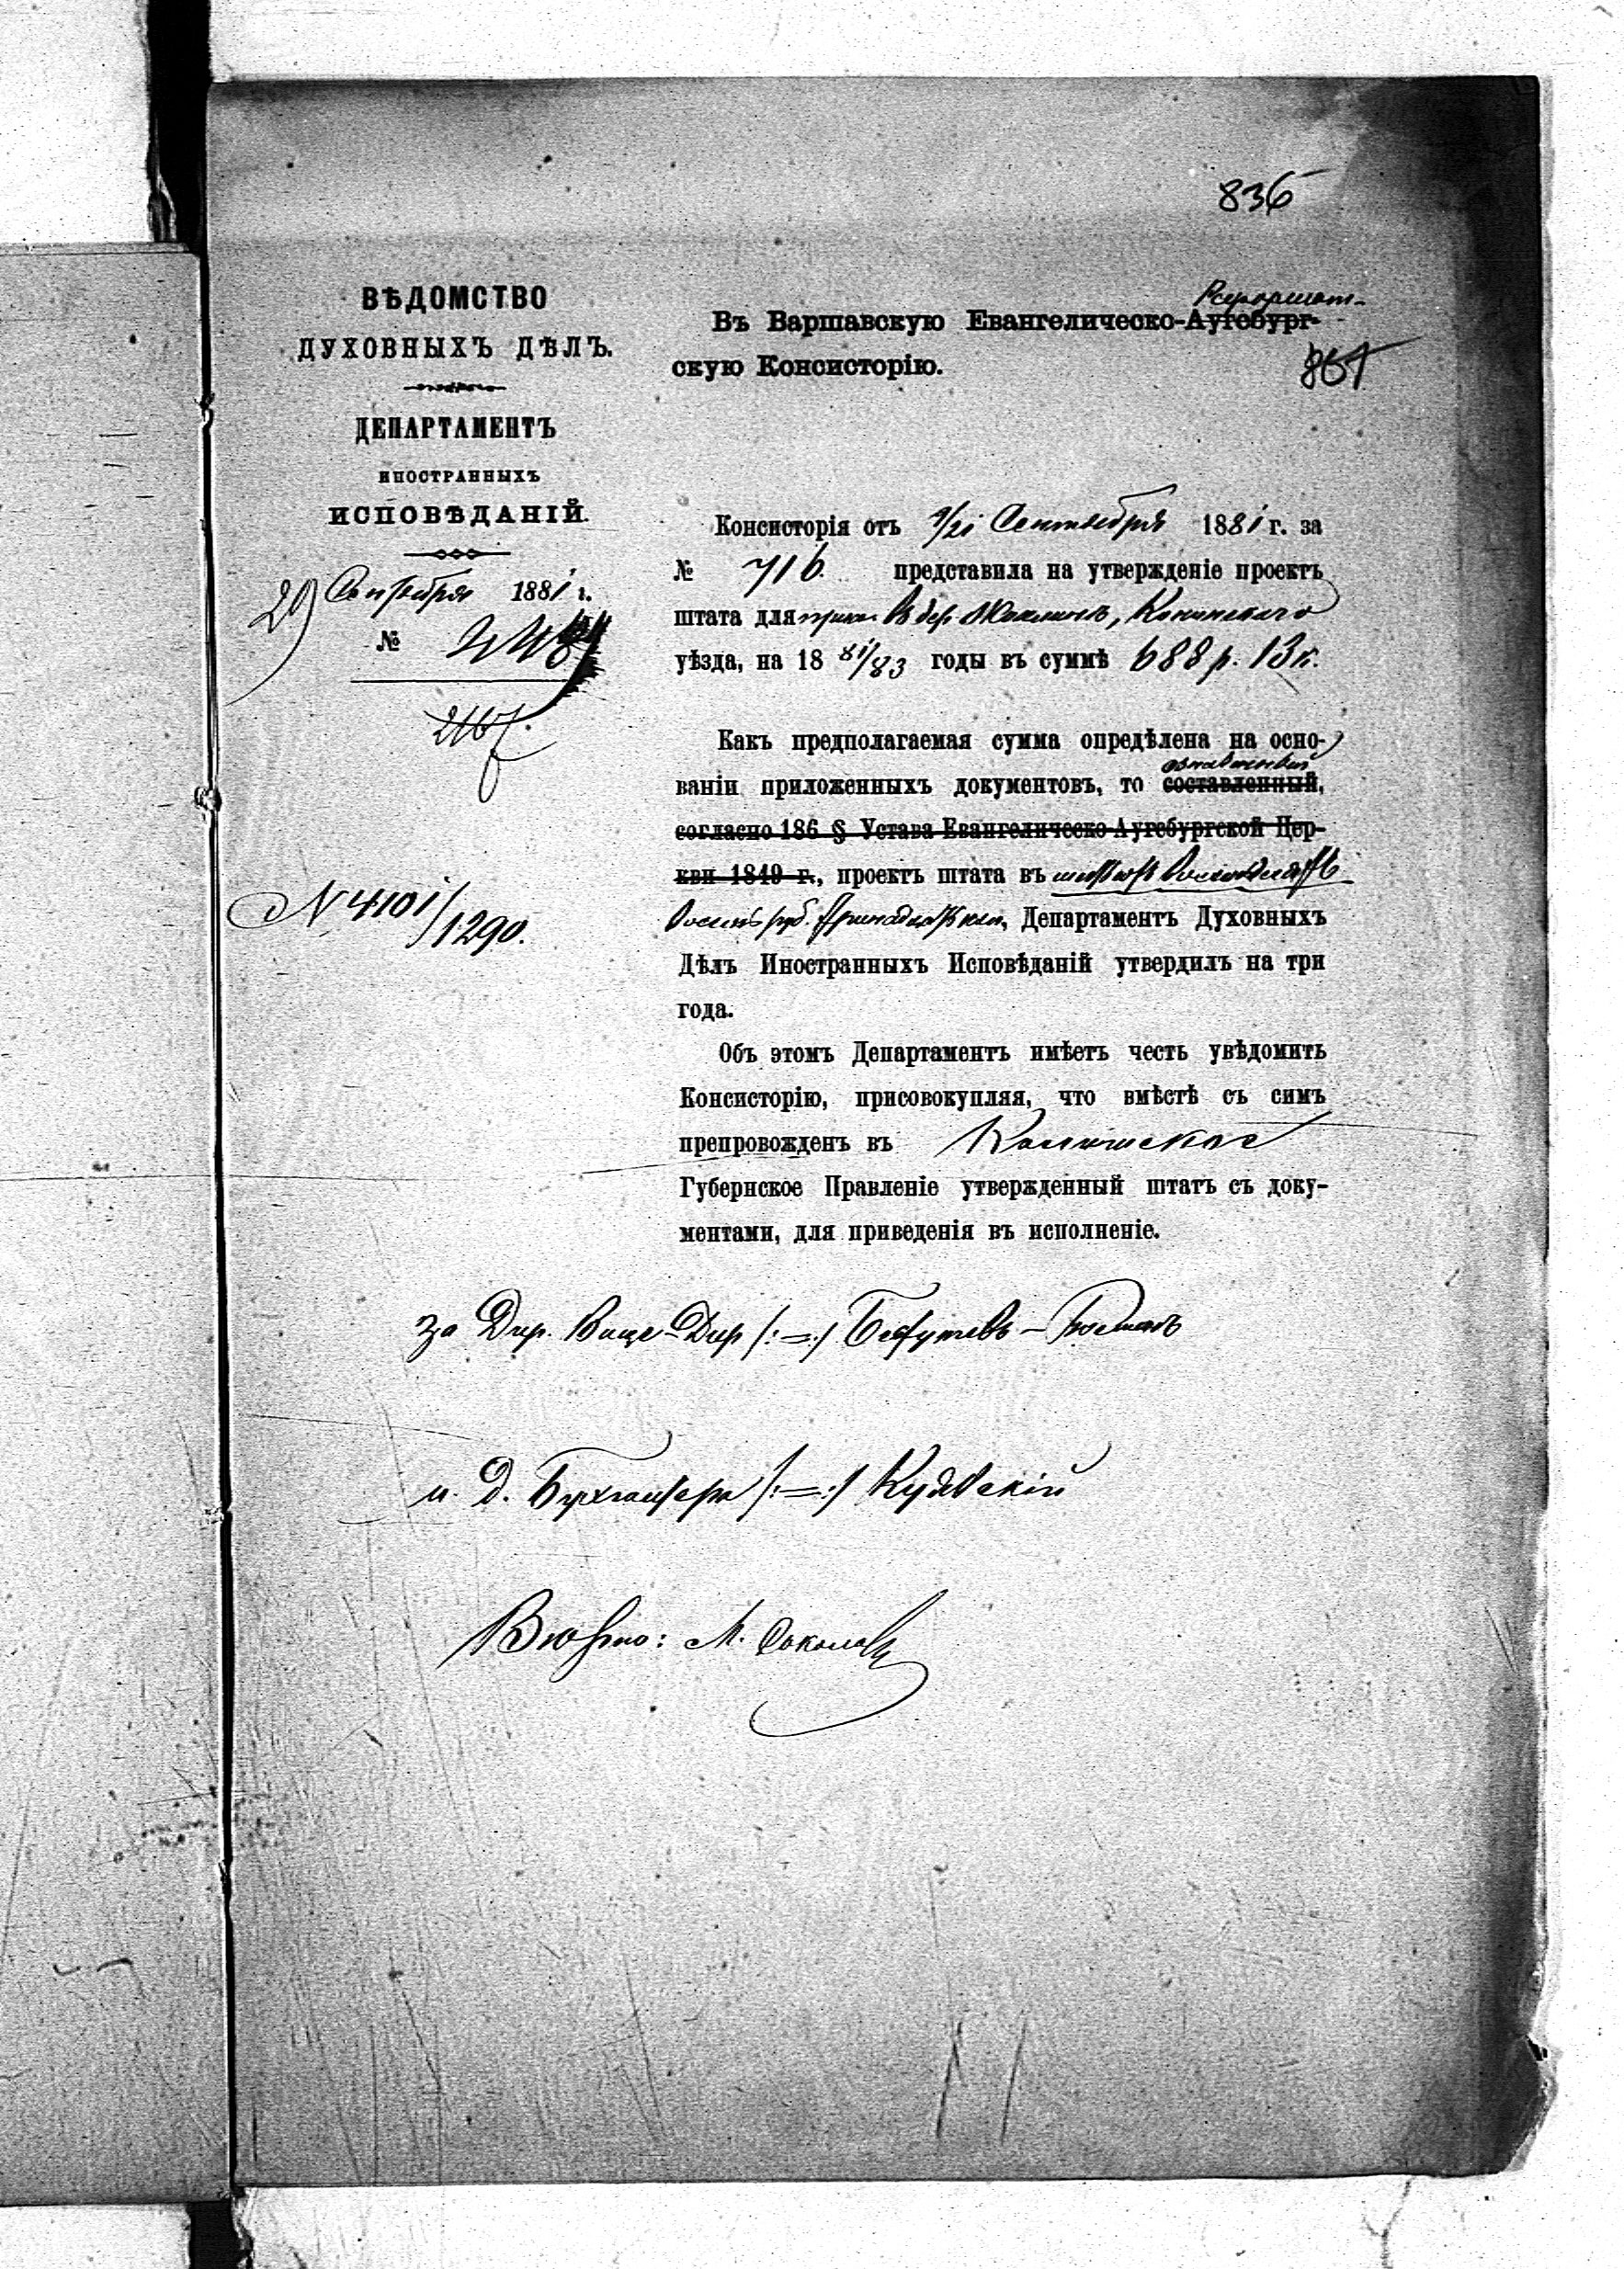 836
ВѢДОМСТВО
ДУХОВНЫХЪ ДѢЛЪ.
ДЕПАРТАМЕНТЪ
ИНОСТРАННЫХЪ
ИСПОВѢДАНІЙ.
29 Сентября 1881 г.
№
2167.
N 4101/1290.
Реформат-
Въ Варшавскую Евангелическо-Аугсбург-
скую Консисторію.
Консисторія отъ 9/21 Сентября 1881 г. за
№ 716. представила на утвержденіе проектъ
штата для въ дер. Жихлинъ, Конинскаго
уѣзда, на 18 81/83 годы въ суммѣ 688 р. 13 к.
Какъ предполагаемая сумма опредѣлена на осно-
ваніи приложенныхъ документовъ, то составленный,
согласно 186 § Устава Евангелическо-Аугсбургской Цер-
кви 1849 г., проектъ штата въ шестьсотъ восемьдесятъ
восемь руб. тринадцать коп., Департаментъ Духовныхъ
Дѣлъ Иностранныхъ Исповѣданій утвердилъ на три
года.
Объ этомъ Департаментъ имѣетъ честь увѣдомить
Консисторію, присовокупляя, что вмѣстѣ съ симъ
препровожденъ въ Калишское
Губернское Правленіе утвержденный штатъ съ доку-
ментами, для приведенія въ исполненіе.
За Дир. Вице-Дир /:=:/ Бестужевъ-Рюминъ
И. Д. Бухгалтера /:=:/ Куявскій
Вѣрно: М. Соколовъ